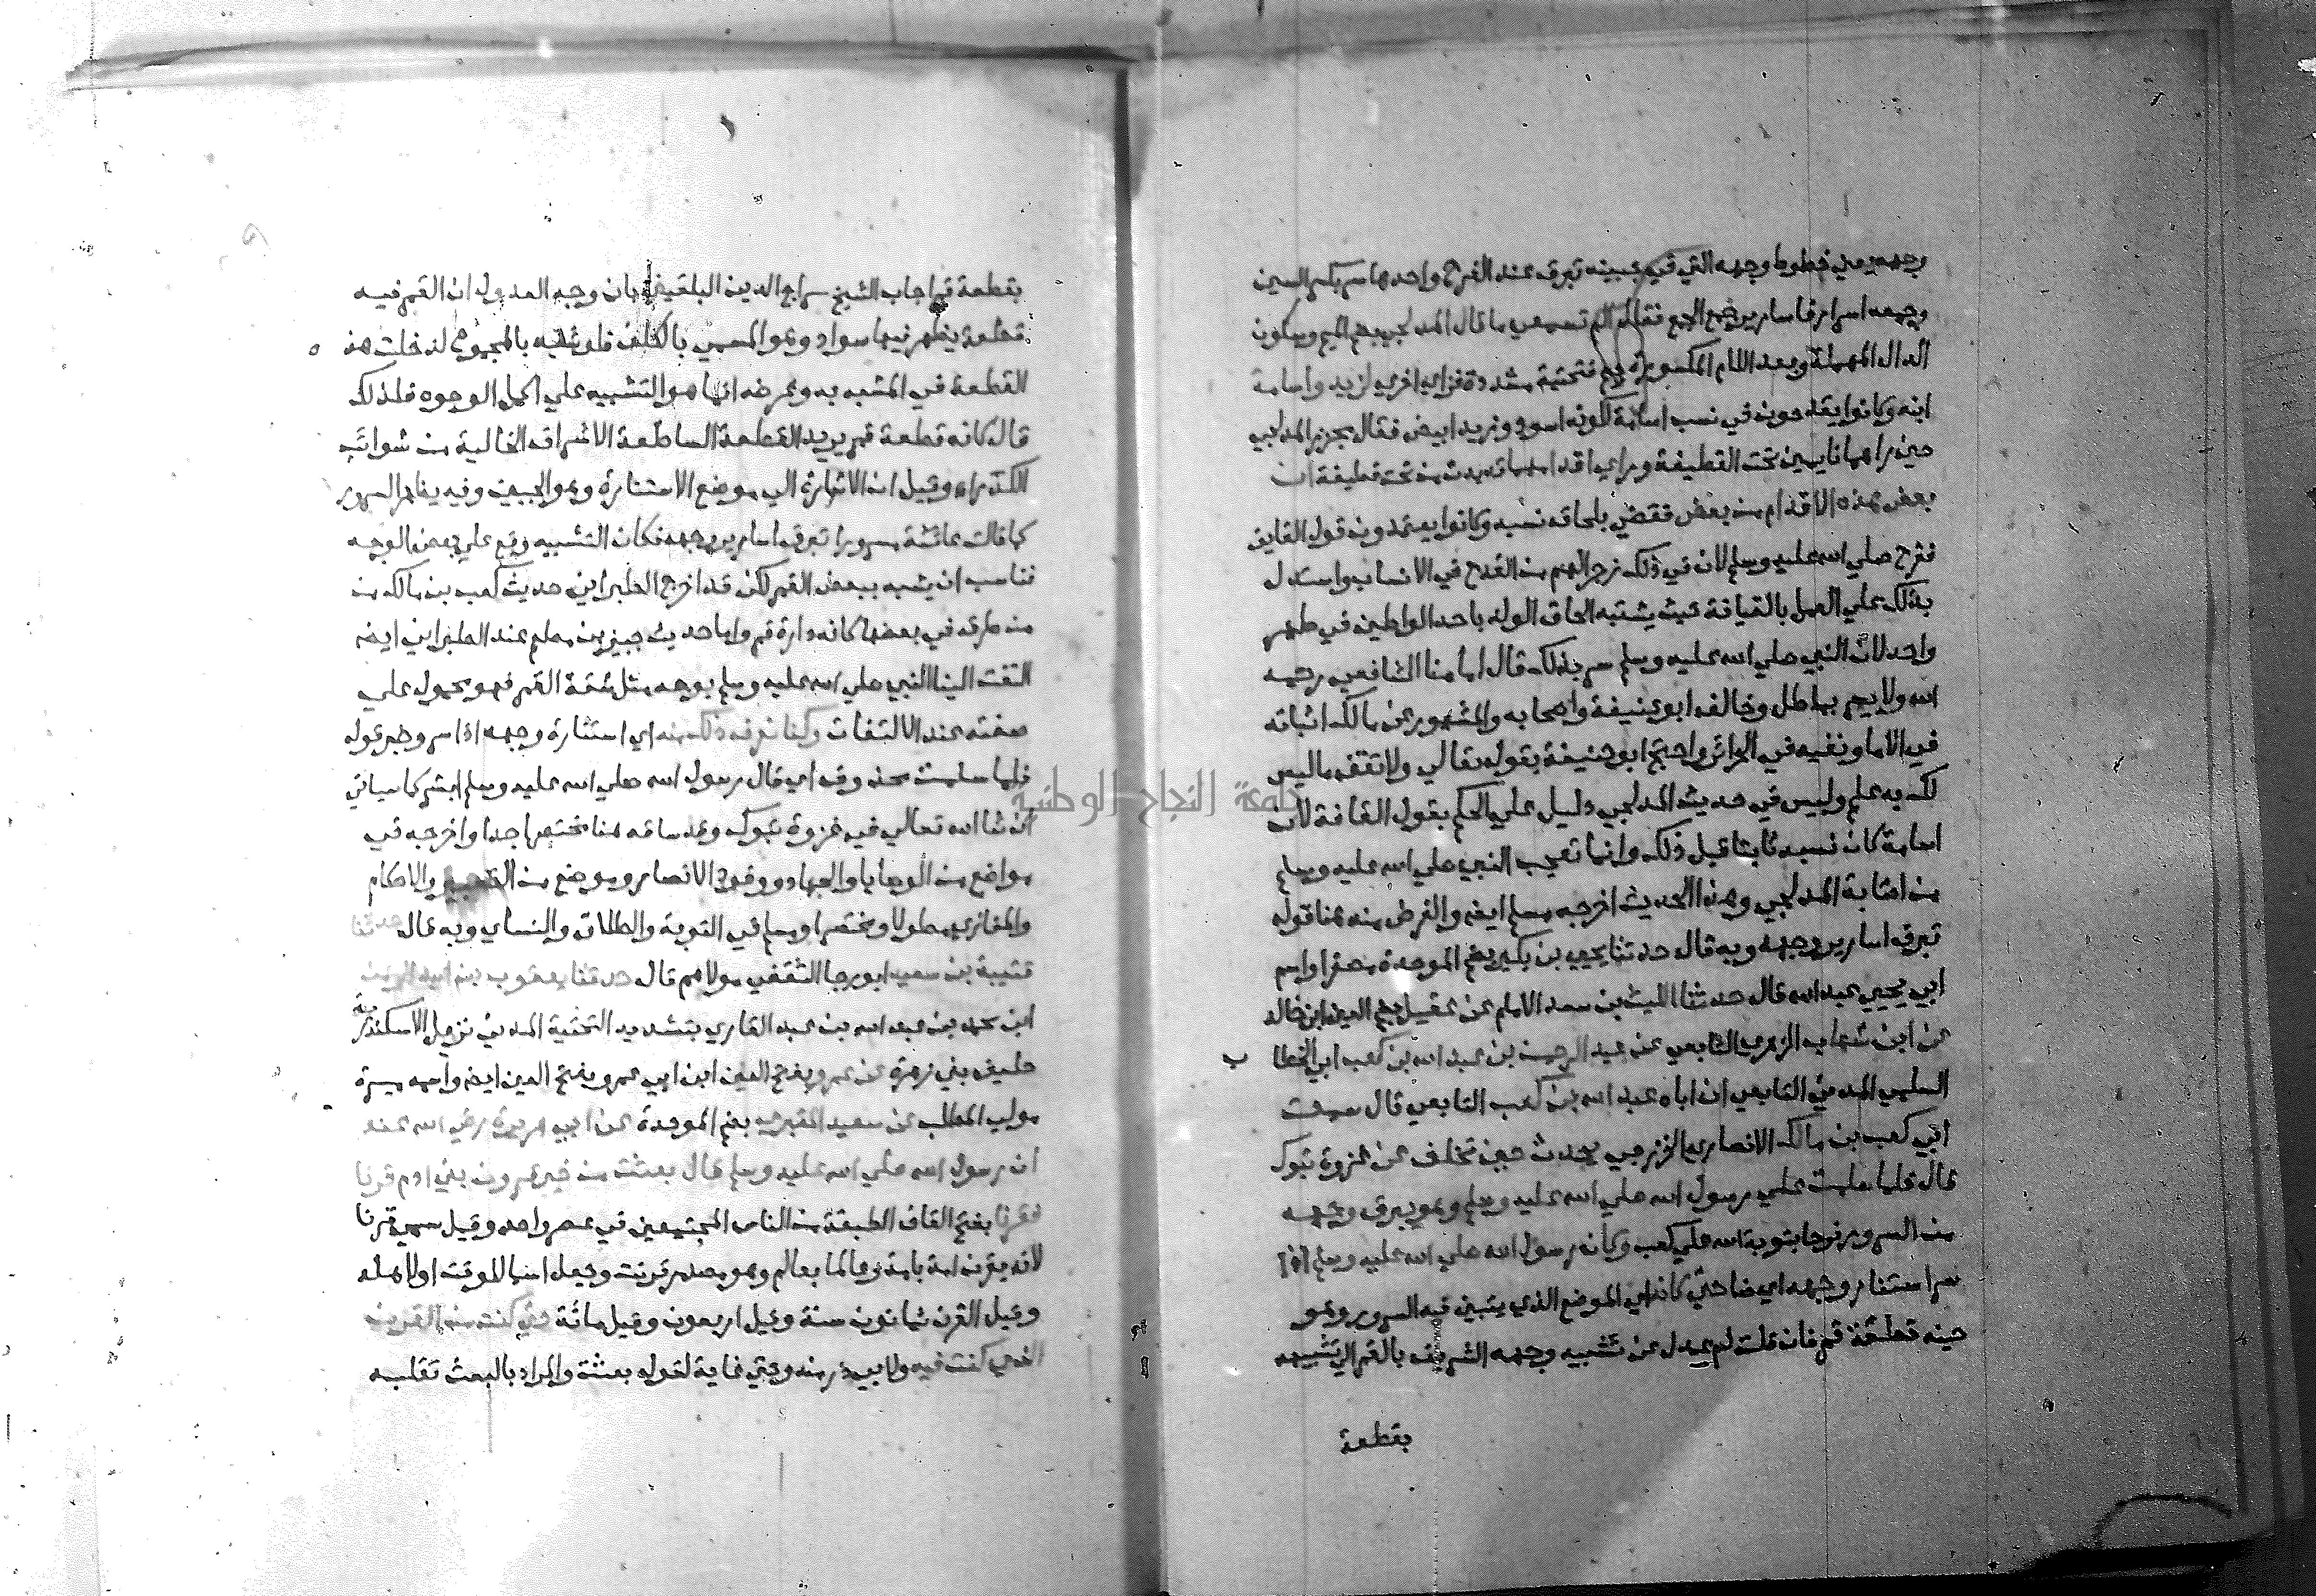 وجهه يعني خطوط وجهه التي في جبينه تبرق عند الفرح واحدها سر بكسر السين
وجمعه اسرار فاسارير جمع الجمع فقال الم تسمعي ما قال المدلجي بضم الميم وسكون
الدال المهملة وبعد اللام المكسورة جيم فتحتية مشددة لزيد واسامة
ابنه وكانوا يقدحون في نسب اسامة لكونه اسود وزيد ابيض فقال مجزز المدلجي
حين راهما نايمين تحت القطيفة وراي اقدامهما قد بدت من تحت قطيفة ان
بعض هذه الاقدام من بعض فقضي بلحاقه نسبه وكانوا يعتمدون قول القايف
ففرح صلي الله عليه وسلم لان في ذلك زجرا لهم من القدح في الانساب واستدل
بذلك علي العمل بالقيافة حيث يشتبه الحاق الولد باحد الواطين في طهر
واحد لان النبي صلي الله عليه وسلم سر بذلك قال امامنا الشافعي رحمه
الله ولا يسر بباطل وخالف ابو حنيفة واصحابه والمشهور عن مالك اثباته
في الاما ونفيه في الحراير واحتج ابو حنيفة بقوله تعالي ولا تقف ما ليس
لك به علم وليس في حديث المدلجي دليل علي الحكم بقول القافة لان
اسامة كان نسبه ثابتا قبل ذلك وانما تعجب النبي صلي الله عليه وسلم
من اصابة المدلجي وهذا الحديث اخرجه مسلم ايضا والغرض منه هنا قوله
تبرق اسارير وجهه وبه قال حدثنا يحيي بن بكير بضم الموحدة مصغرا واسم
ابي يحيي عبد الله قال حدثنا الليث بن سعد الامام عن عقيل بضم العين ابن خالد
عن ابن شهاب الزهري التابعي عن عبد الرحمن بن عبد الله بن كعب ابي الخطا ب
السلمي المدني التابعي ان اباه عبد الله بن كعب التابعي قال سمعت
ابي كعب بن مالك الانصاري الخزرجي يحدث حين تخلف عن غزوة تبوك
قال فلما سلمت علي رسول الله صلي الله عليه وسلم وهو يبرق وجهه
من السرور فرحا بتوبة الله علي كعب وكان رسول الله صلي الله عليه وسلم اذا
سر استنار وجهه اي ضا حتي كانه اي الموضع الذي يتبين فيه السرور وهو
جبينه قطعة قمر فان قلت لم عدل عن تشبيه وجهه الشريف بالقمر الي تشبيهه
بقطعة
بقطعة قمر اجاب الشيخ سراج الدين البلقيني بان وجه العدول ان القمر فيه
قطعة يظهر فيها سواد وهو المسمي بالكلف فلو شبه بالمجموع لدخلت هذه
القطعة في المشبه به وغرضه انما هو التشبيه علي اكمل الوجوه فلذلك
قال كانه قطعة قمر يريد القطعة الساطعة الاشراق الخالية من شوائب
الكدر اه وقيل ان الاشارة الي موضع الاستنارة وهو الجبين وفيه يظهر السرور
كما قالت عائشة مسرورا تبرق اسارير وجهه فكان التشبيه وقع علي بعض الوجه
فناسب ان يشبه ببعض القمر لكن قد اخرج الطبراني حديث كعب بن مالك من
من طرق في بعضها كانه دارة قمر واما حديث جبير بن مطعم عند الطبراني ايضا
التفت الينا النبي صلي الله عليه وسلم بوجه مثل شقة القمر فهو محمول علي
صفته عند الالتفات وكنا نعرف ذلك منه اي استنارة وجهه اذا سر وخبر قوله
فلما سلمت محذوف اي قال رسول الله صلي الله عليه وسلم ابشر كما سياتي
ان شا الله تعالي في غزوة تبوك وقد ساقه هنا مختصرا جدا واخرجه في
مواضع من الوصايا والجهاد ووفود الانصار وموضع من التفسير والاحكام
والمغازي مطولا ومختصرا ومسلم في التوبة والطلاق والنساي وبه قال حدثنا
قتيبة بن سعيد ابو رجا الثقفي مولاهم قال حدثنا يعقوب بن عبد الرحمن
ابن محمد بن عبد الله بن عبد القاري بتشديد التحتية المدني نزيل الاسكندرية
حليف بني زهرة عن عمرو بفتح العين ابن ابي عمرو بفتح العين ايضا واسمه ميسرة
مولي المطلب عن سعيد المقبري بضم الموحدة عن ابي هريرة رضي الله عنه
ان رسول الله صلي الله عليه وسلم قال بعثت من خير قرون بني ادم قرنا
فقرنا بفتح القاف الطبقة من الناس المجتمعين في عصر واحد وقيل سمي قرنا
لانه يقرن امة بامة وعالما بعالم وهو مصدر قرنت وجعل اسما للوقت او لاهله
وقيل القرن ثمانون سنة وقيل اربعون وقيل مائة حتي كنت من القرن
الذي كنت فيه ولابي ذر منه وحتي غاية لقوله بعثت والمراد بالبعث تقلبه
جامعة النجاح الوطنية